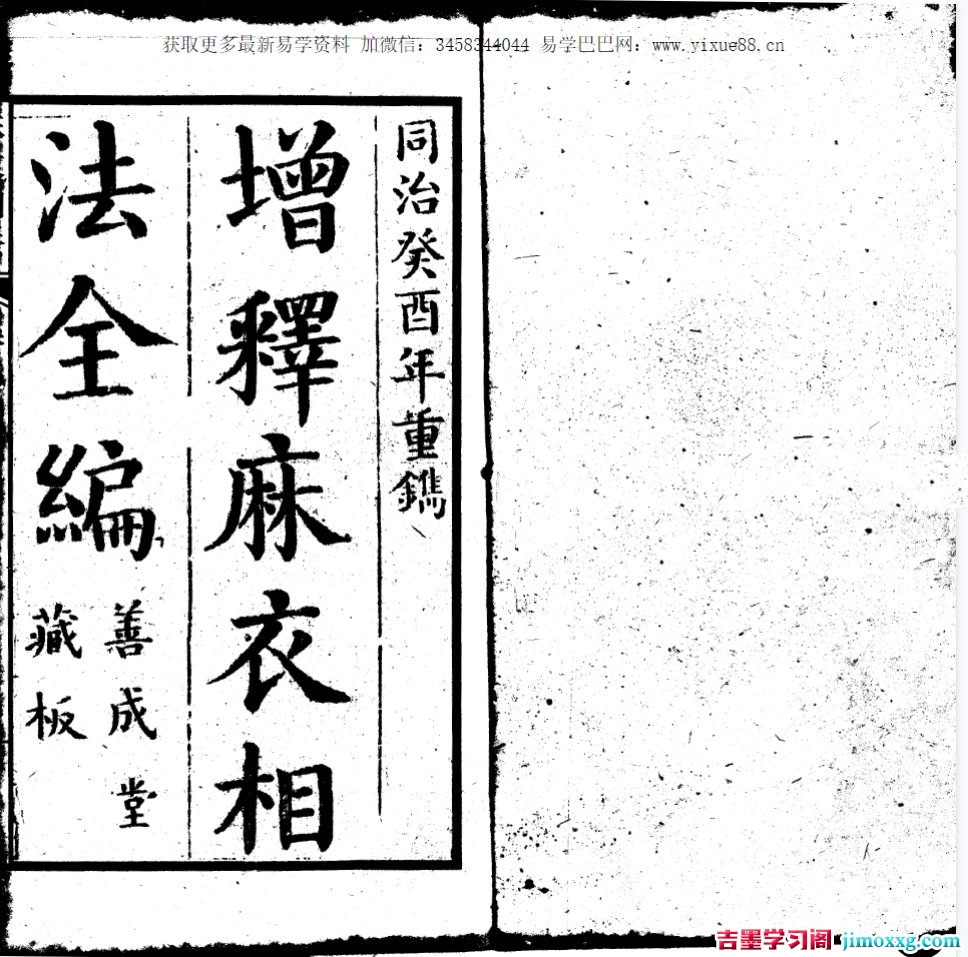 获取更多最新易学资料 加微信：3458344044 易学巴巴网：www.yixue88.cn
同治癸酉年重鐫
增釋麻衣相
法全編
善成堂
藏板
吉墨学习阁 jimoxxg.com